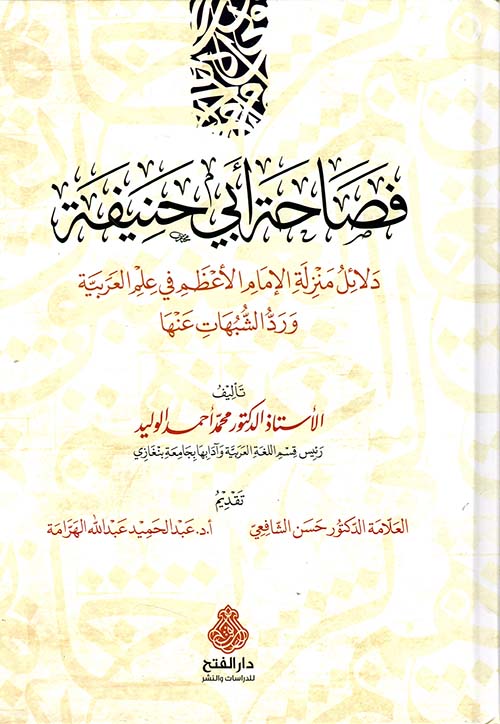 فَصَاحَة أبي حَنِيفَة
دَلَائِلُ مَنْزِلَةِ الإِمَامِ الأَعْظَمِ فِي عِلْمِ العَرَبِيَّة
وَرَدُّ الشُّبُهَاتِ عَنْهَا
تَأْلِيفُ
الأستاذ الدكتور محمد أحمد الوليد
رَئِيس قِسْمِ اللغَةِ العَرَبيَّةِ وَآدَابِهَا بِجَامِعَةِ بنغَازِي
تَقْدِيمُ
العَلَّامَة الدّكتُور حَسَن الشَّافِعِيّ
أ.د. عَبْد الحَمِيْد عَبْد الله الهَرَّامَة
دار الفتح
للدراسات والنشر